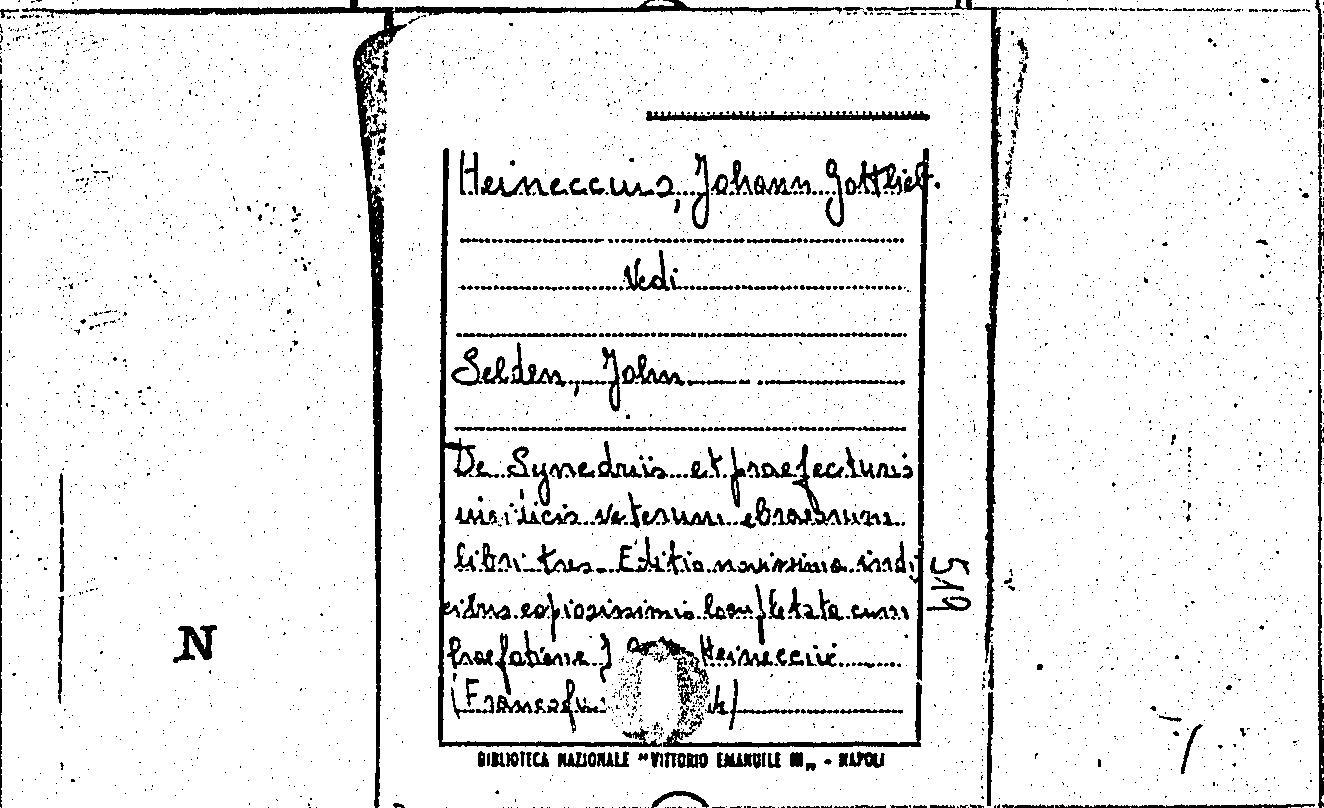 Heineccius, Johann Gottlieb.
Vedi
Selden, John
De Synedriis et praefecturis
iuridicis veterum ebraeorum
libri tres. Editio novissima indi
cibus copiosissimis locupletata cum
praefatione J Heineccii
(Francofu
519
N
BIBLIOTECA NAZIONALE "VITTORIO EMANUELE III„ - NAPOLI